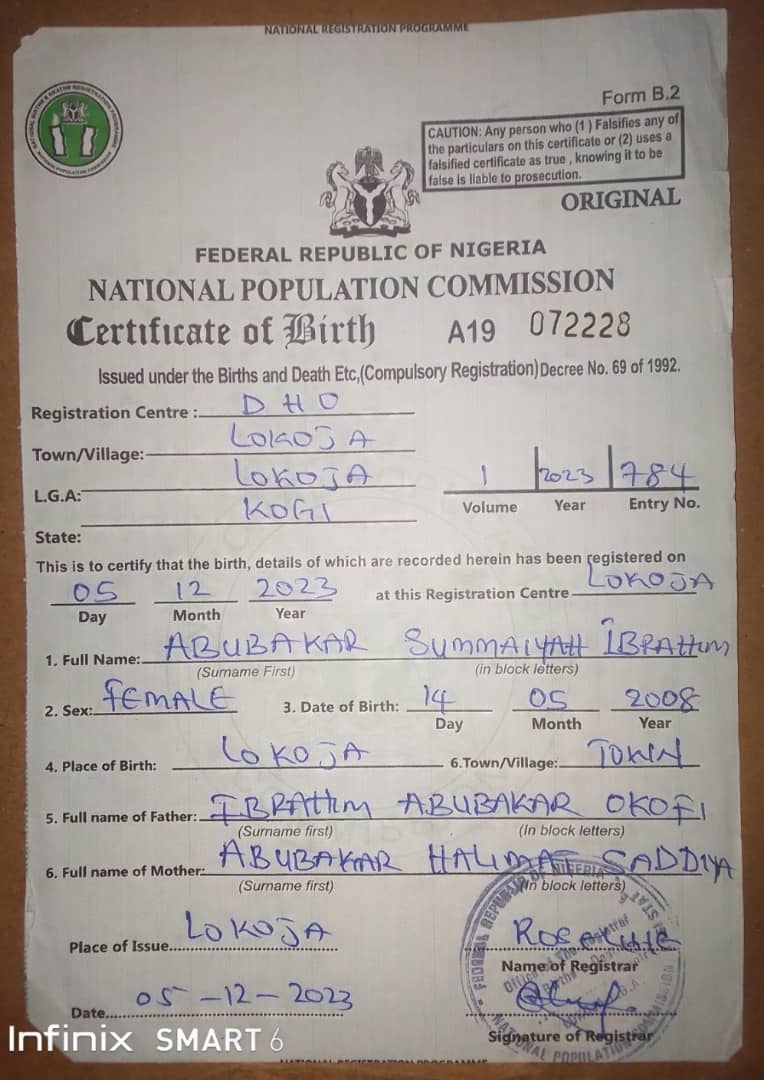 NATIONAL REGISTRATION PROGRAMME
Form B.2
CAUTION: Any person who (1 ) Falsifies any of
the particulars on this certificate or (2) uses a
falsified certificate as true , knowing it to be
false is liable to prosecution.
ORIGINAL
FEDERAL REPUBLIC OF NIGERIA
NATIONAL POPULATION COMMISSION
Certificate of Birth A19 072228
Issued under the Births and Death Etc,(Compulsory Registration) Decree No. 69 of 1992.
Registration Centre :- DHO
Town/Village:- LOKOJA
L.G.A: LOKOJA
1 2023 784
Volume Year Entry No.
State: KOGI
This is to certify that the birth, details of which are recorded herein has been registered on
05 12 2023 at this Registration Centre LOKOJA
Day Month Year
1. Full Name: ABUBAKAR SUMMAIYAH IBRAHIM
(Surname First) (in block letters)
2. Sex: FEMALE 3. Date of Birth: 14 05 2008
Day Month Year
4. Place of Birth: LOKOJA 6.Town/Village: TOWN
5. Full name of Father: IBRAHIM ABUBAKAR OKOFI
(Surname first) (In block letters)
6. Full name of Mother: ABUBAKAR HALIMAT SADDIYA
(Surname first) (In block letters)
Place of Issue LOKOJA
Name of Registrar
Date 05-12-2023
Signature of Registrar
FEDERAL REPUBLIC OF NIGERIA
NATIONAL POPULATION COMMISSION
Office of The Registrar
NATIONAL REGISTRATION PROGRAMME
Infinix SMART 6